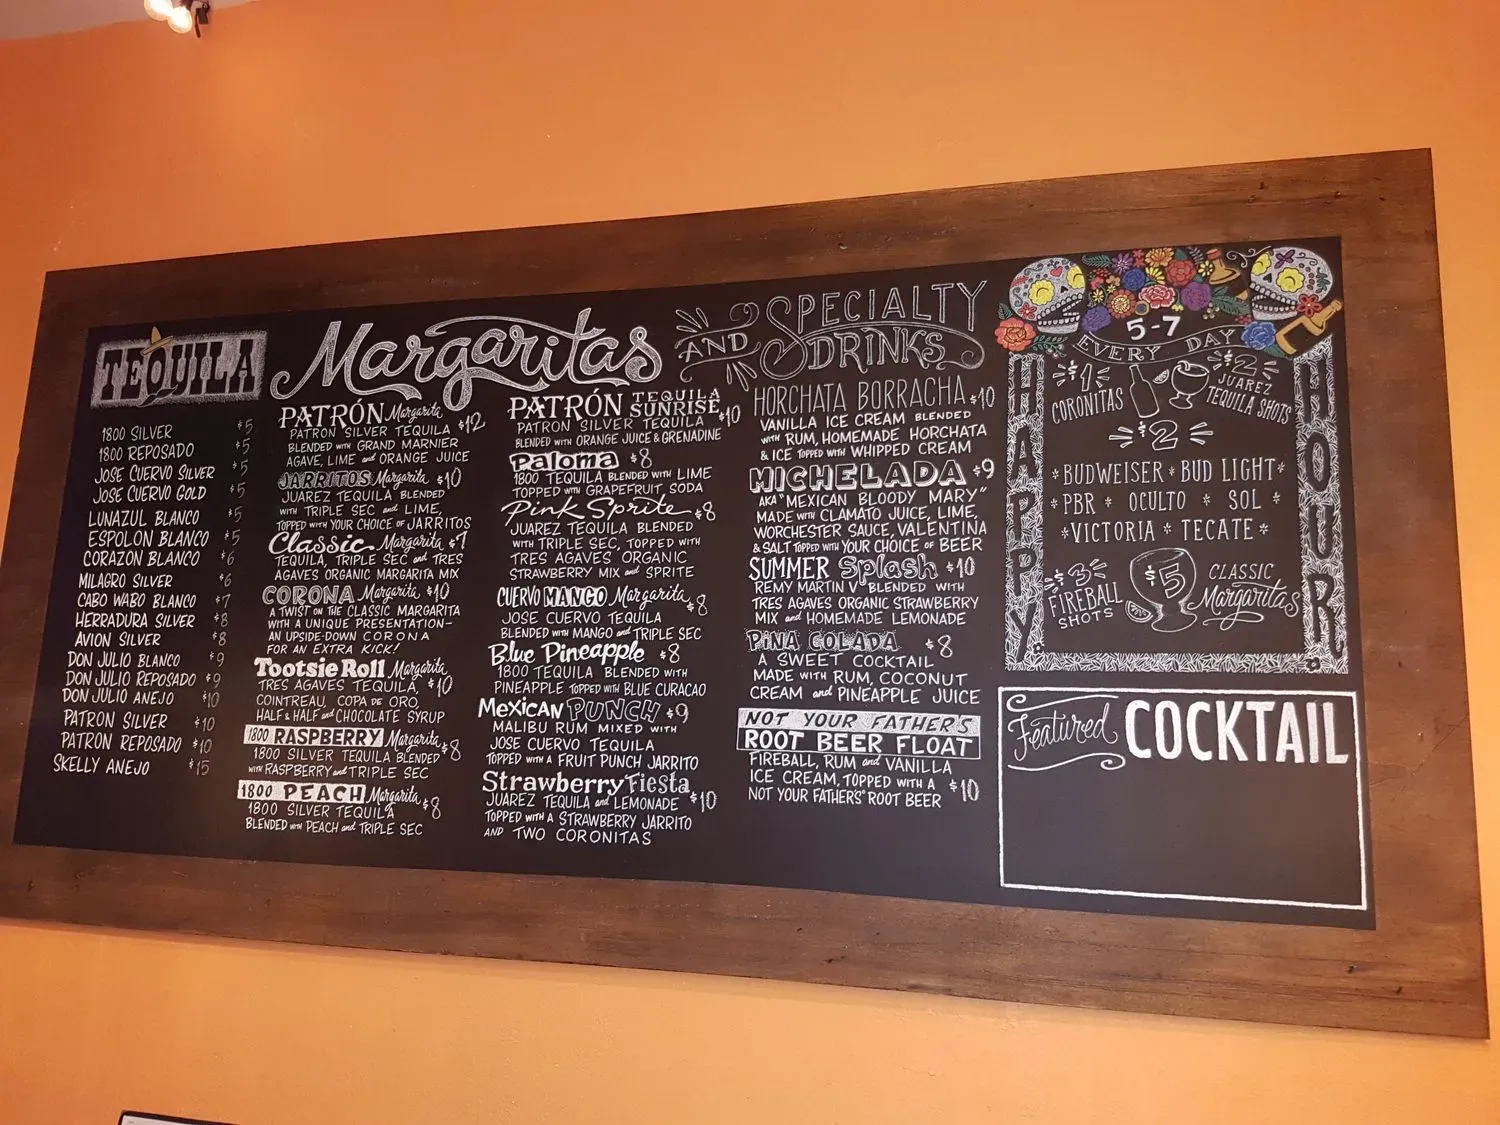 TEQUILA
1800 SILVER $5
1800 REPOSADO $5
JOSE CUERVO SILVER $5
JOSE CUERVO GOLD $5
LUNAZUL BLANCO $5
ESPOLON BLANCO $5
CORAZON BLANCO $6
MILAGRO SILVER $6
CABO WABO BLANCO $7
HERRADURA SILVER $8
AVION SILVER $8
DON JULIO BLANCO $9
DON JULIO REPOSADO $9
DON JULIO ANEJO $10
PATRON SILVER $10
PATRON REPOSADO $10
SKELLY ANEJO $15
Margaritas AND SPECIALTY DRINKS
PATRÓN Margarita $12
PATRON SILVER TEQUILA
BLENDED WITH GRAND MARNIER
AGAVE, LIME and ORANGE JUICE
JARRITOS Margarita $10
JUAREZ TEQUILA BLENDED
WITH TRIPLE SEC and LIME,
TOPPED WITH YOUR CHOICE of JARRITOS
Classic Margarita $7
TEQUILA, TRIPLE SEC and TRES
AGAVES ORGANIC MARGARITA MIX
CORONA Margarita $10
A TWIST ON THE CLASSIC MARGARITA
WITH A UNIQUE PRESENTATION-
AN UPSIDE-DOWN CORONA
FOR AN EXTRA KICK!
Tootsie Roll Margarita $10
TRES AGAVES TEQUILA,
COINTREAU, COPA DE ORO,
HALF & HALF and CHOCOLATE SYRUP
1800 RASPBERRY Margarita $8
1800 SILVER TEQUILA BLENDED
WITH RASPBERRY and TRIPLE SEC
1800 PEACH Margarita $8
1800 SILVER TEQUILA
BLENDED WITH PEACH and TRIPLE SEC
PATRÓN TEQUILA SUNRISE $10
PATRON SILVER TEQUILA
BLENDED WITH ORANGE JUICE & GRENADINE
Paloma $8
1800 TEQUILA BLENDED WITH LIME
TOPPED WITH GRAPEFRUIT SODA
Pink Sprite $8
JUAREZ TEQUILA BLENDED
WITH TRIPLE SEC, TOPPED WITH
TRES AGAVES ORGANIC
STRAWBERRY MIX and SPRITE
CUERVO MANGO Margarita $8
JOSE CUERVO TEQUILA
BLENDED WITH MANGO and TRIPLE SEC
Blue Pineapple $8
1800 TEQUILA BLENDED WITH
PINEAPPLE TOPPED WITH BLUE CURACAO
MEXICAN PUNCH $9
MALIBU RUM MIXED WITH
JOSE CUERVO TEQUILA
TOPPED WITH A FRUIT PUNCH JARRITO
Strawberry Fiesta $10
JUAREZ TEQUILA and LEMONADE
TOPPED WITH A STRAWBERRY JARRITO
AND TWO CORONITAS
HORCHATA BORRACHA $10
VANILLA ICE CREAM BLENDED
WITH RUM, HOMEMADE HORCHATA
& ICE TOPPED WITH WHIPPED CREAM
MICHELADA $9
AKA "MEXICAN BLOODY MARY"
MADE WITH CLAMATO JUICE, LIME,
WORCHESTER SAUCE, VALENTINA
& SALT TOPPED WITH YOUR CHOICE OF BEER
SUMMER Splash $10
REMY MARTIN V BLENDED WITH
TRES AGAVES ORGANIC STRAWBERRY
MIX and HOMEMADE LEMONADE
PIÑA COLADA $8
A SWEET COCKTAIL
MADE WITH RUM, COCONUT
CREAM and PINEAPPLE JUICE
NOT YOUR FATHER'S
ROOT BEER FLOAT
FIREBALL, RUM and VANILLA
ICE CREAM, TOPPED WITH A $10
NOT YOUR FATHER'S ROOT BEER
HAPPY HOUR
5-7
EVERY DAY
$1
CORONITAS
$2
JUAREZ
TEQUILA SHOTS
$2
*BUDWEISER * BUD LIGHT*
* PBR * OCULTO * SOL *
*VICTORIA * TECATE *
$3
FIREBALL
SHOTS
$5
CLASSIC
Margaritas
Featured COCKTAIL